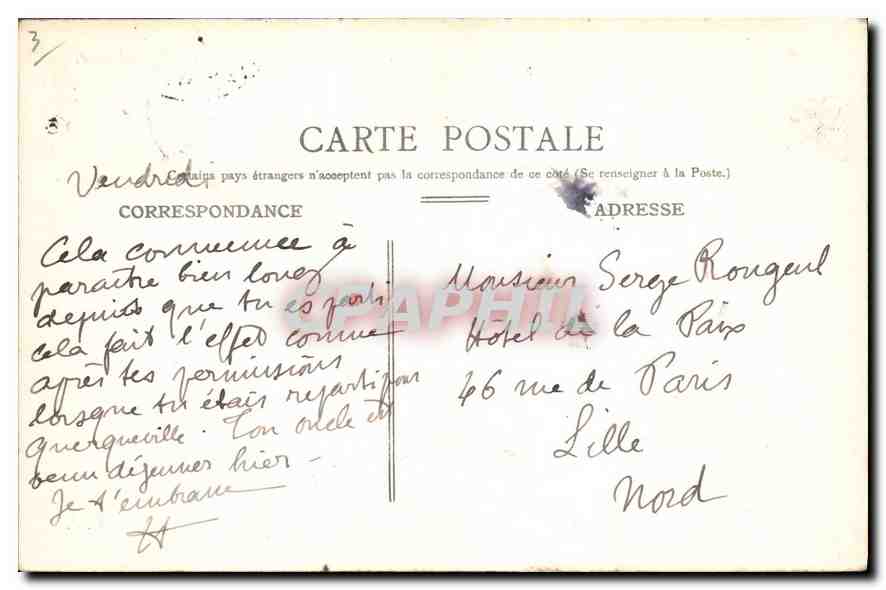 3
CARTE POSTALE
Vendredi
Certains pays étrangers n'acceptent pas la correspondance de ce côté (Se renseigner à la Poste.)
CORRESPONDANCE
Cela commence à
paraître bien long
depuis que tu es parti
cela fait l'effet comme
après tes permissions
lorsque tu étais reparti pour
Querqueville. Ton oncle est
venu déjeuner hier -
Je t'embrasse
H
ADRESSE
Monsieur Serge Rongeul
Hôtel de la Paix
46 rue de Paris
Lille
Nord
CPAPHIL